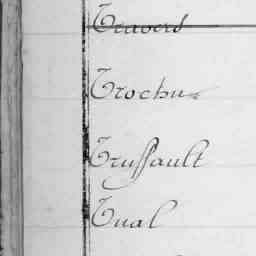 Travers
Trochu
Truffault
Tual